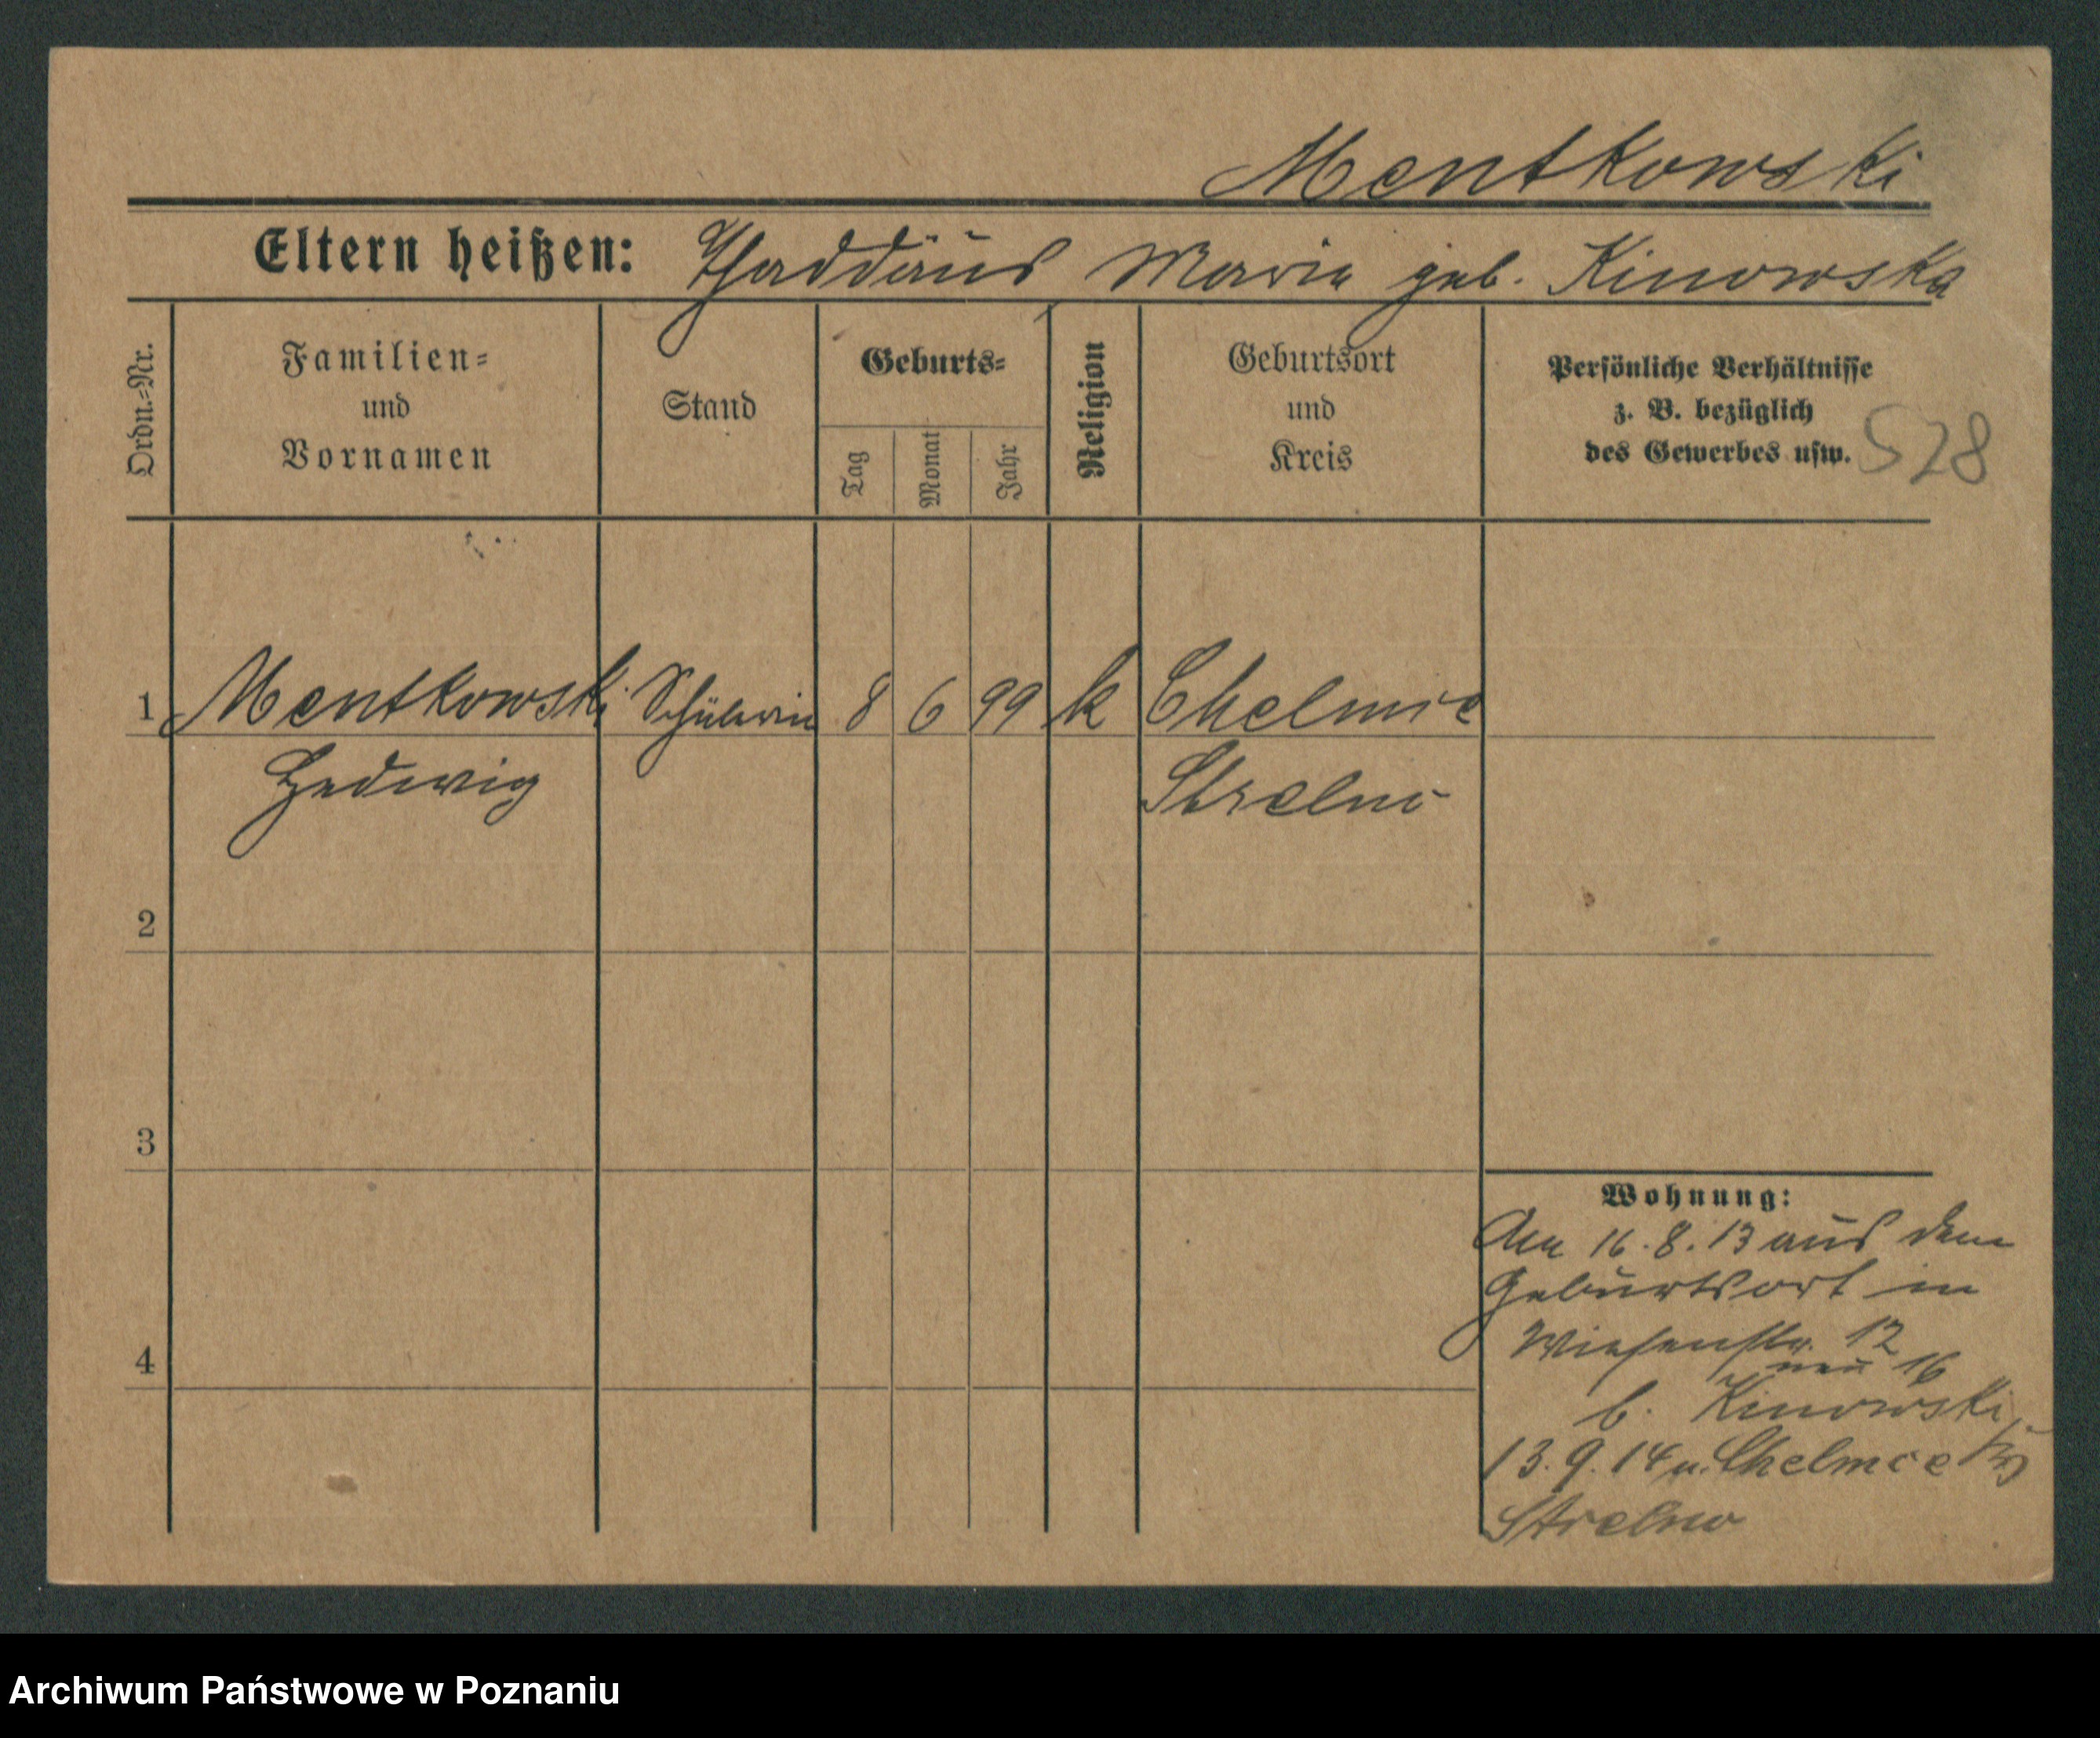 Mentkowski
Eltern heißen: Thaddäus Maria geb. Kinowska
Ordn.-Nr.
Familien-
und
Vornamen
Stand
Geburts-
Tag
Monat
Jahr
Religion
Geburtsort
und
Kreis
Persönliche Verhältnisse
z. B. bezüglich
des Gewerbes usw.
528
1 Mentkowski Schülerin 8 6 99 k Chelmce
Hedwig Strelno
2
3
4
Wohnung:
Am 16.8.13 aus dem
Geburtsort in
Wiesenstr. 12
neu 16
b. Kinowski
13.9.14 n. Chelmce
Strelno
Archiwum Państwowe w Poznaniu